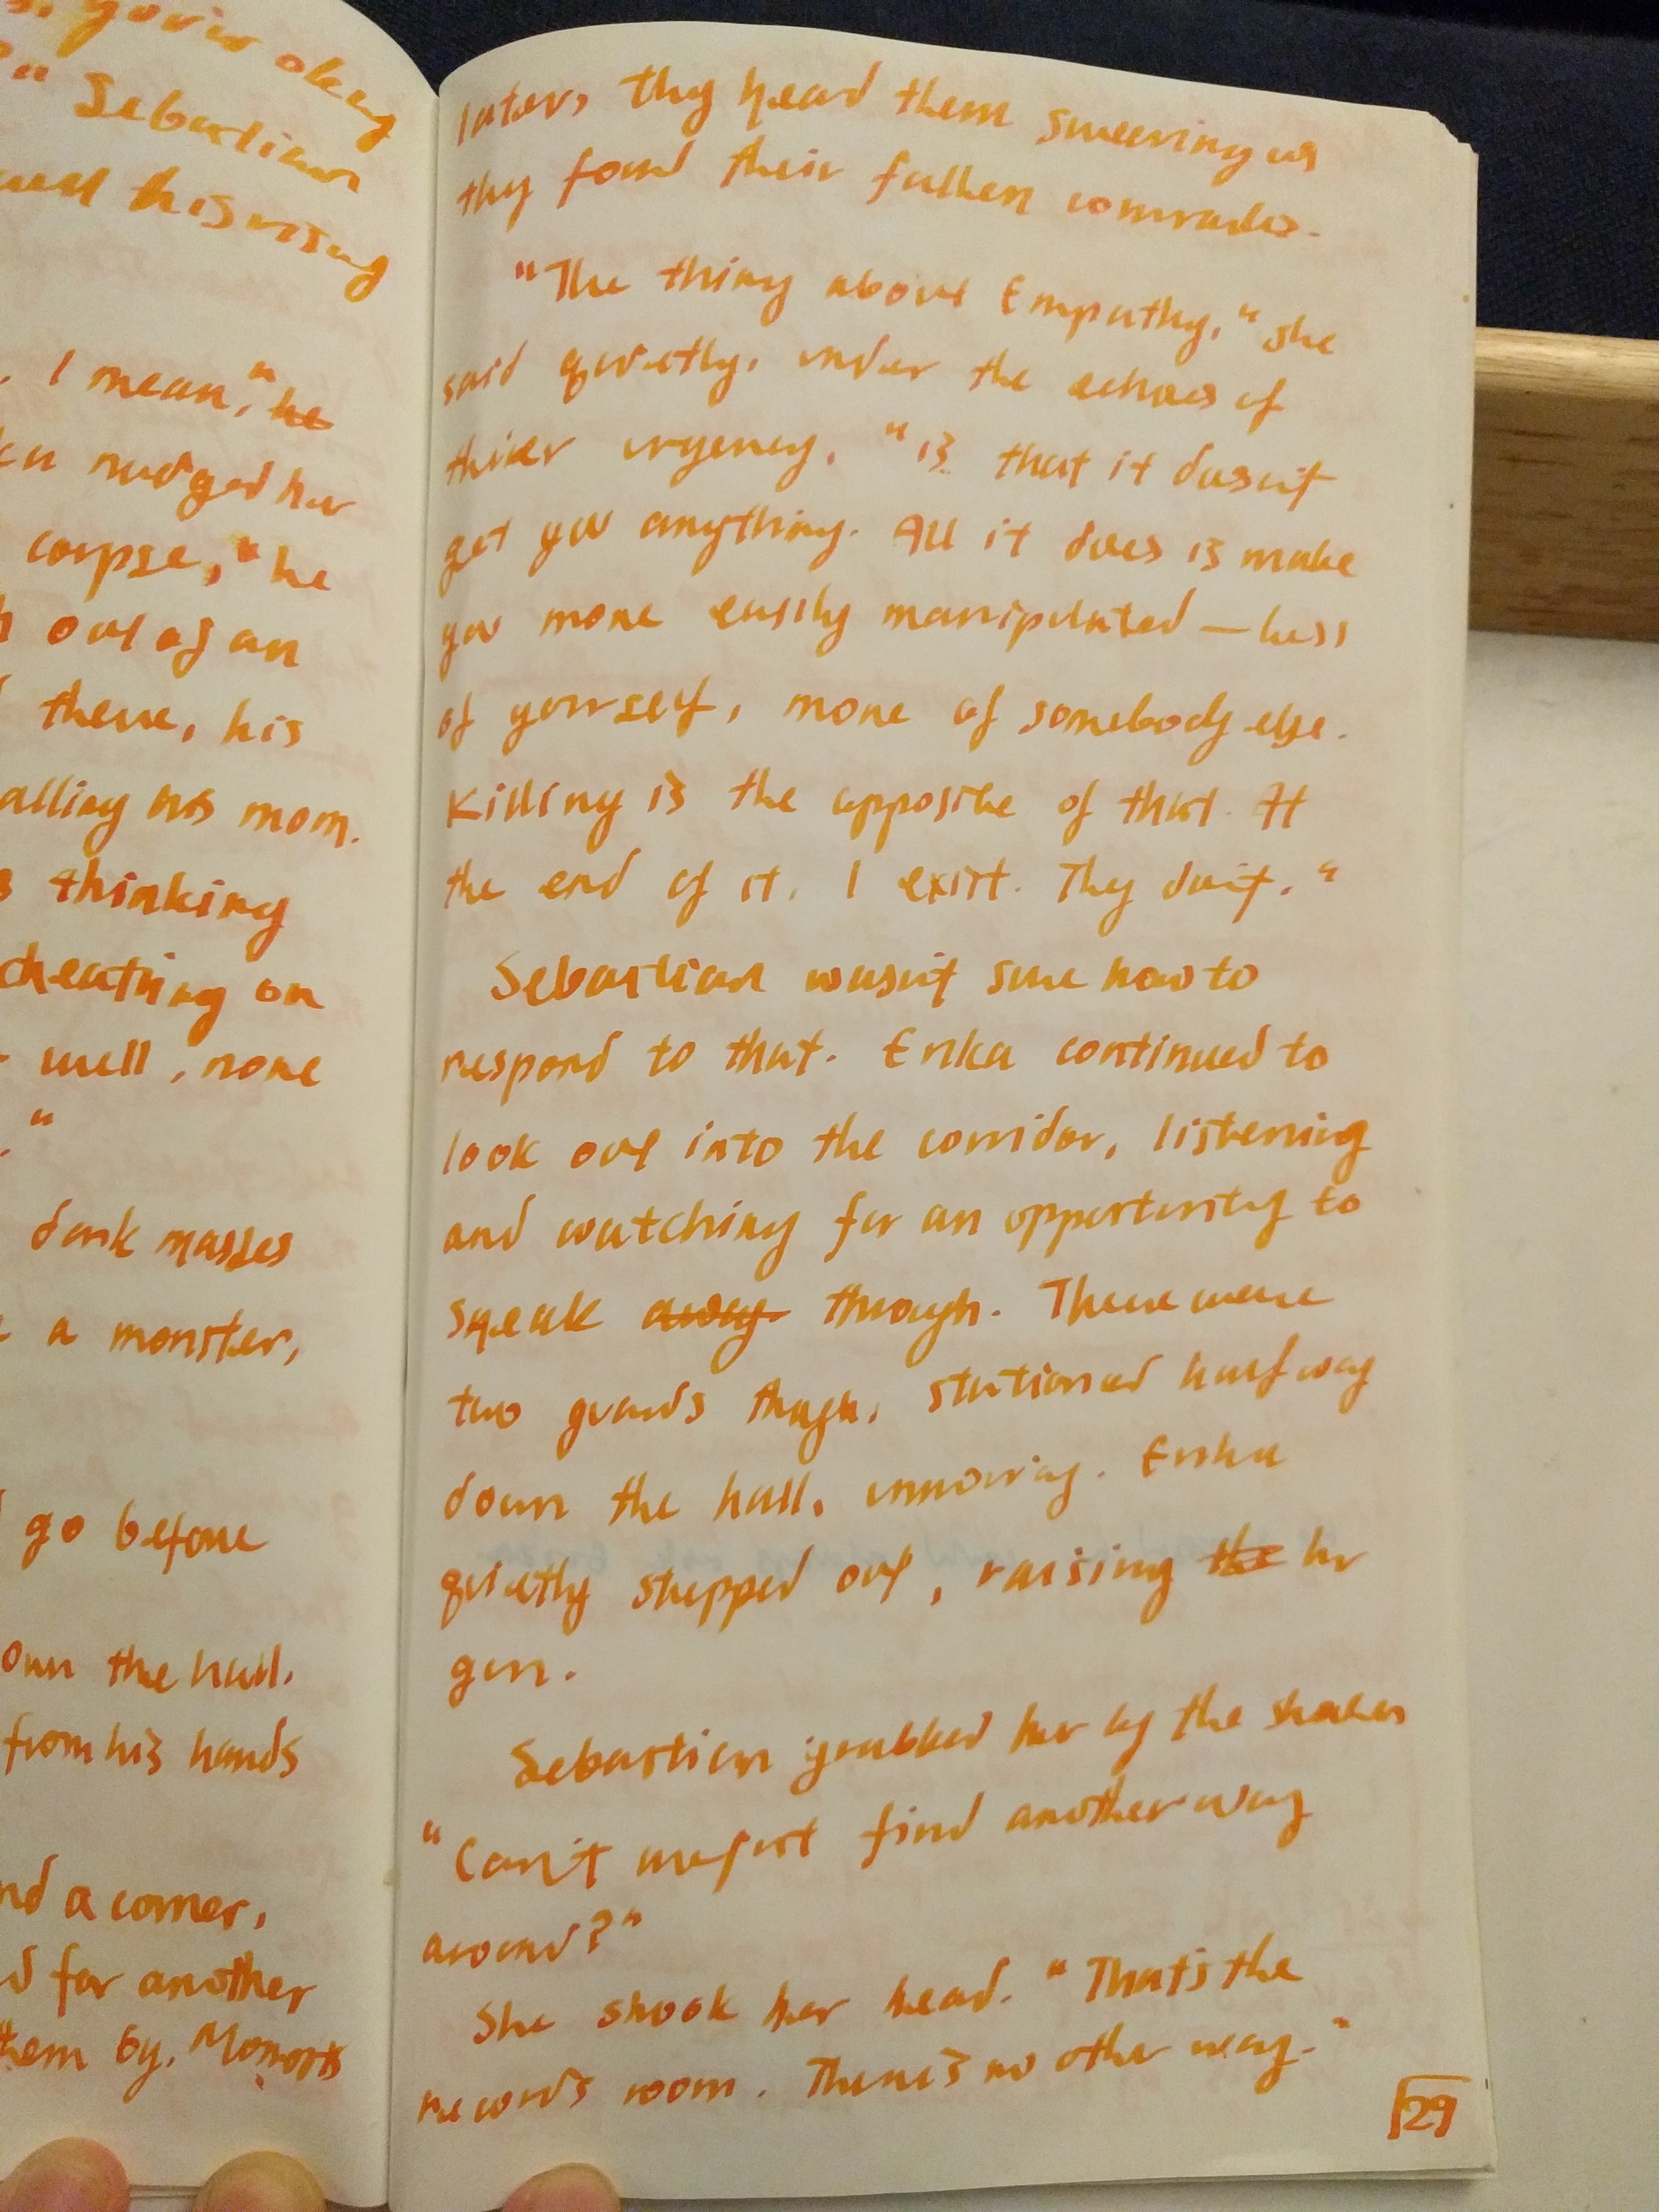 okay
" Sebastian
his rising
I mean," he
nudged her
corpse," he
out of an
there, his
alling his mom.
thinking
cheating on
well, none
."
dark masses
a monster,
go before
own the hall.
from his hands
nd a corner,
d for another
hem by. Moments
later, they heard them swearing as
they found their fallen comrades.
"The thing about Empathy," she
said quietly, under the echoes of
thier urgency, "is that it doesn't
get you anything. All it does is make
you more easily manipulated — less
of yourself, more of somebody else.
Killing is the opposite of that. At
the end of it, I exist. They don't."
Sebastian wasn't sure how to
respond to that. Erika continued to
look out into the corridor, listening
and watching for an opportunity to
sneak away through. There were
two guards though, stationed halfway
down the hall, unmoving. Erika
quietly stepped out, raising the her
gun.
Sebastian grabbed her by the
"Can't we just find another way
around?"
She shook her head. "That's the
records room. There's no other way."
29